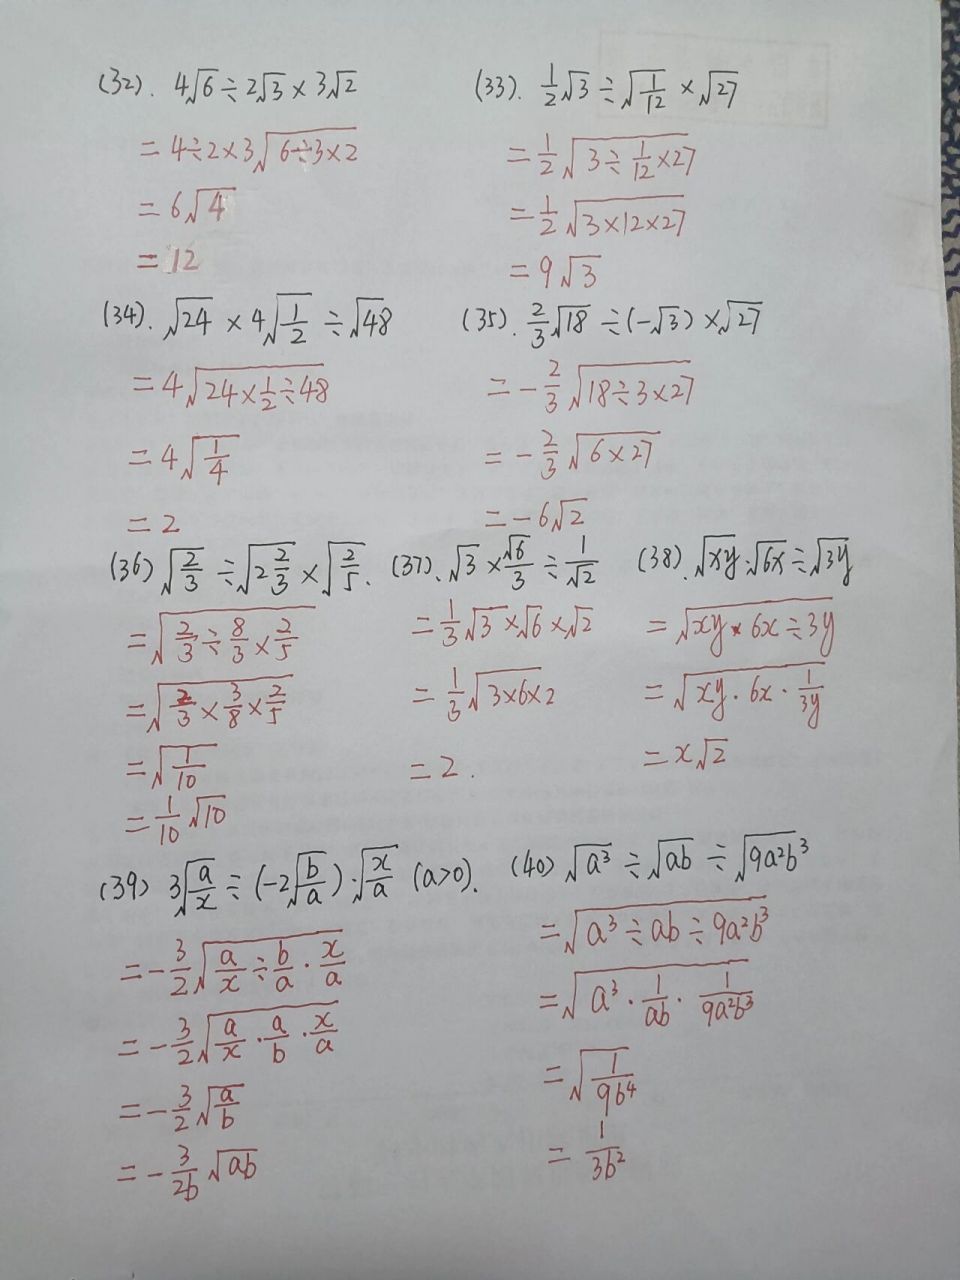 (32). 4√6 ÷ 2√3 × 3√2
= 4÷2×3√(6÷3×2)
= 6√4
= 12
(33). 1/2 √3 ÷ √(1/12) × √27
= 1/2 √(3 ÷ 1/12 × 27)
= 1/2 √(3×12×27)
= 9√3
(34). √24 × 4√(1/2) ÷ √48
= 4√(24 × 1/2 ÷ 48)
= 4√(1/4)
= 2
(35). 2/3 √18 ÷ (-√3) × √27
= - 2/3 √(18÷3×27)
= - 2/3 √(6×27)
= -6√2
(36) √(2/3) ÷ √(2 2/3) × √(2/5).
= √(2/3 ÷ 8/3 × 2/5)
= √(2/3 × 3/8 × 2/5)
= √(1/10)
= 1/10 √10
(37). √3 × √6/3 ÷ 1/√2
= 1/3 √3 × √6 × √2
= 1/3 √(3×6×2)
= 2.
(38). √xy · √6x ÷ √3y
= √(xy · 6x ÷ 3y)
= √(xy · 6x · 1/3y)
= x√2
(39) 3√(a/x) ÷ (-2√(b/a)) · √(x/a) (a>0).
= - 3/2 √(a/x ÷ b/a · x/a)
= - 3/2 √(a/x · a/b · x/a)
= - 3/2 √(a/b)
= - 3/2b √ab
(40) √a³ ÷ √ab ÷ √9a²b³
= √(a³ ÷ ab ÷ 9a²b³)
= √(a³ · 1/ab · 1/9a²b³)
= √(1/9b⁴)
= 1/3b²